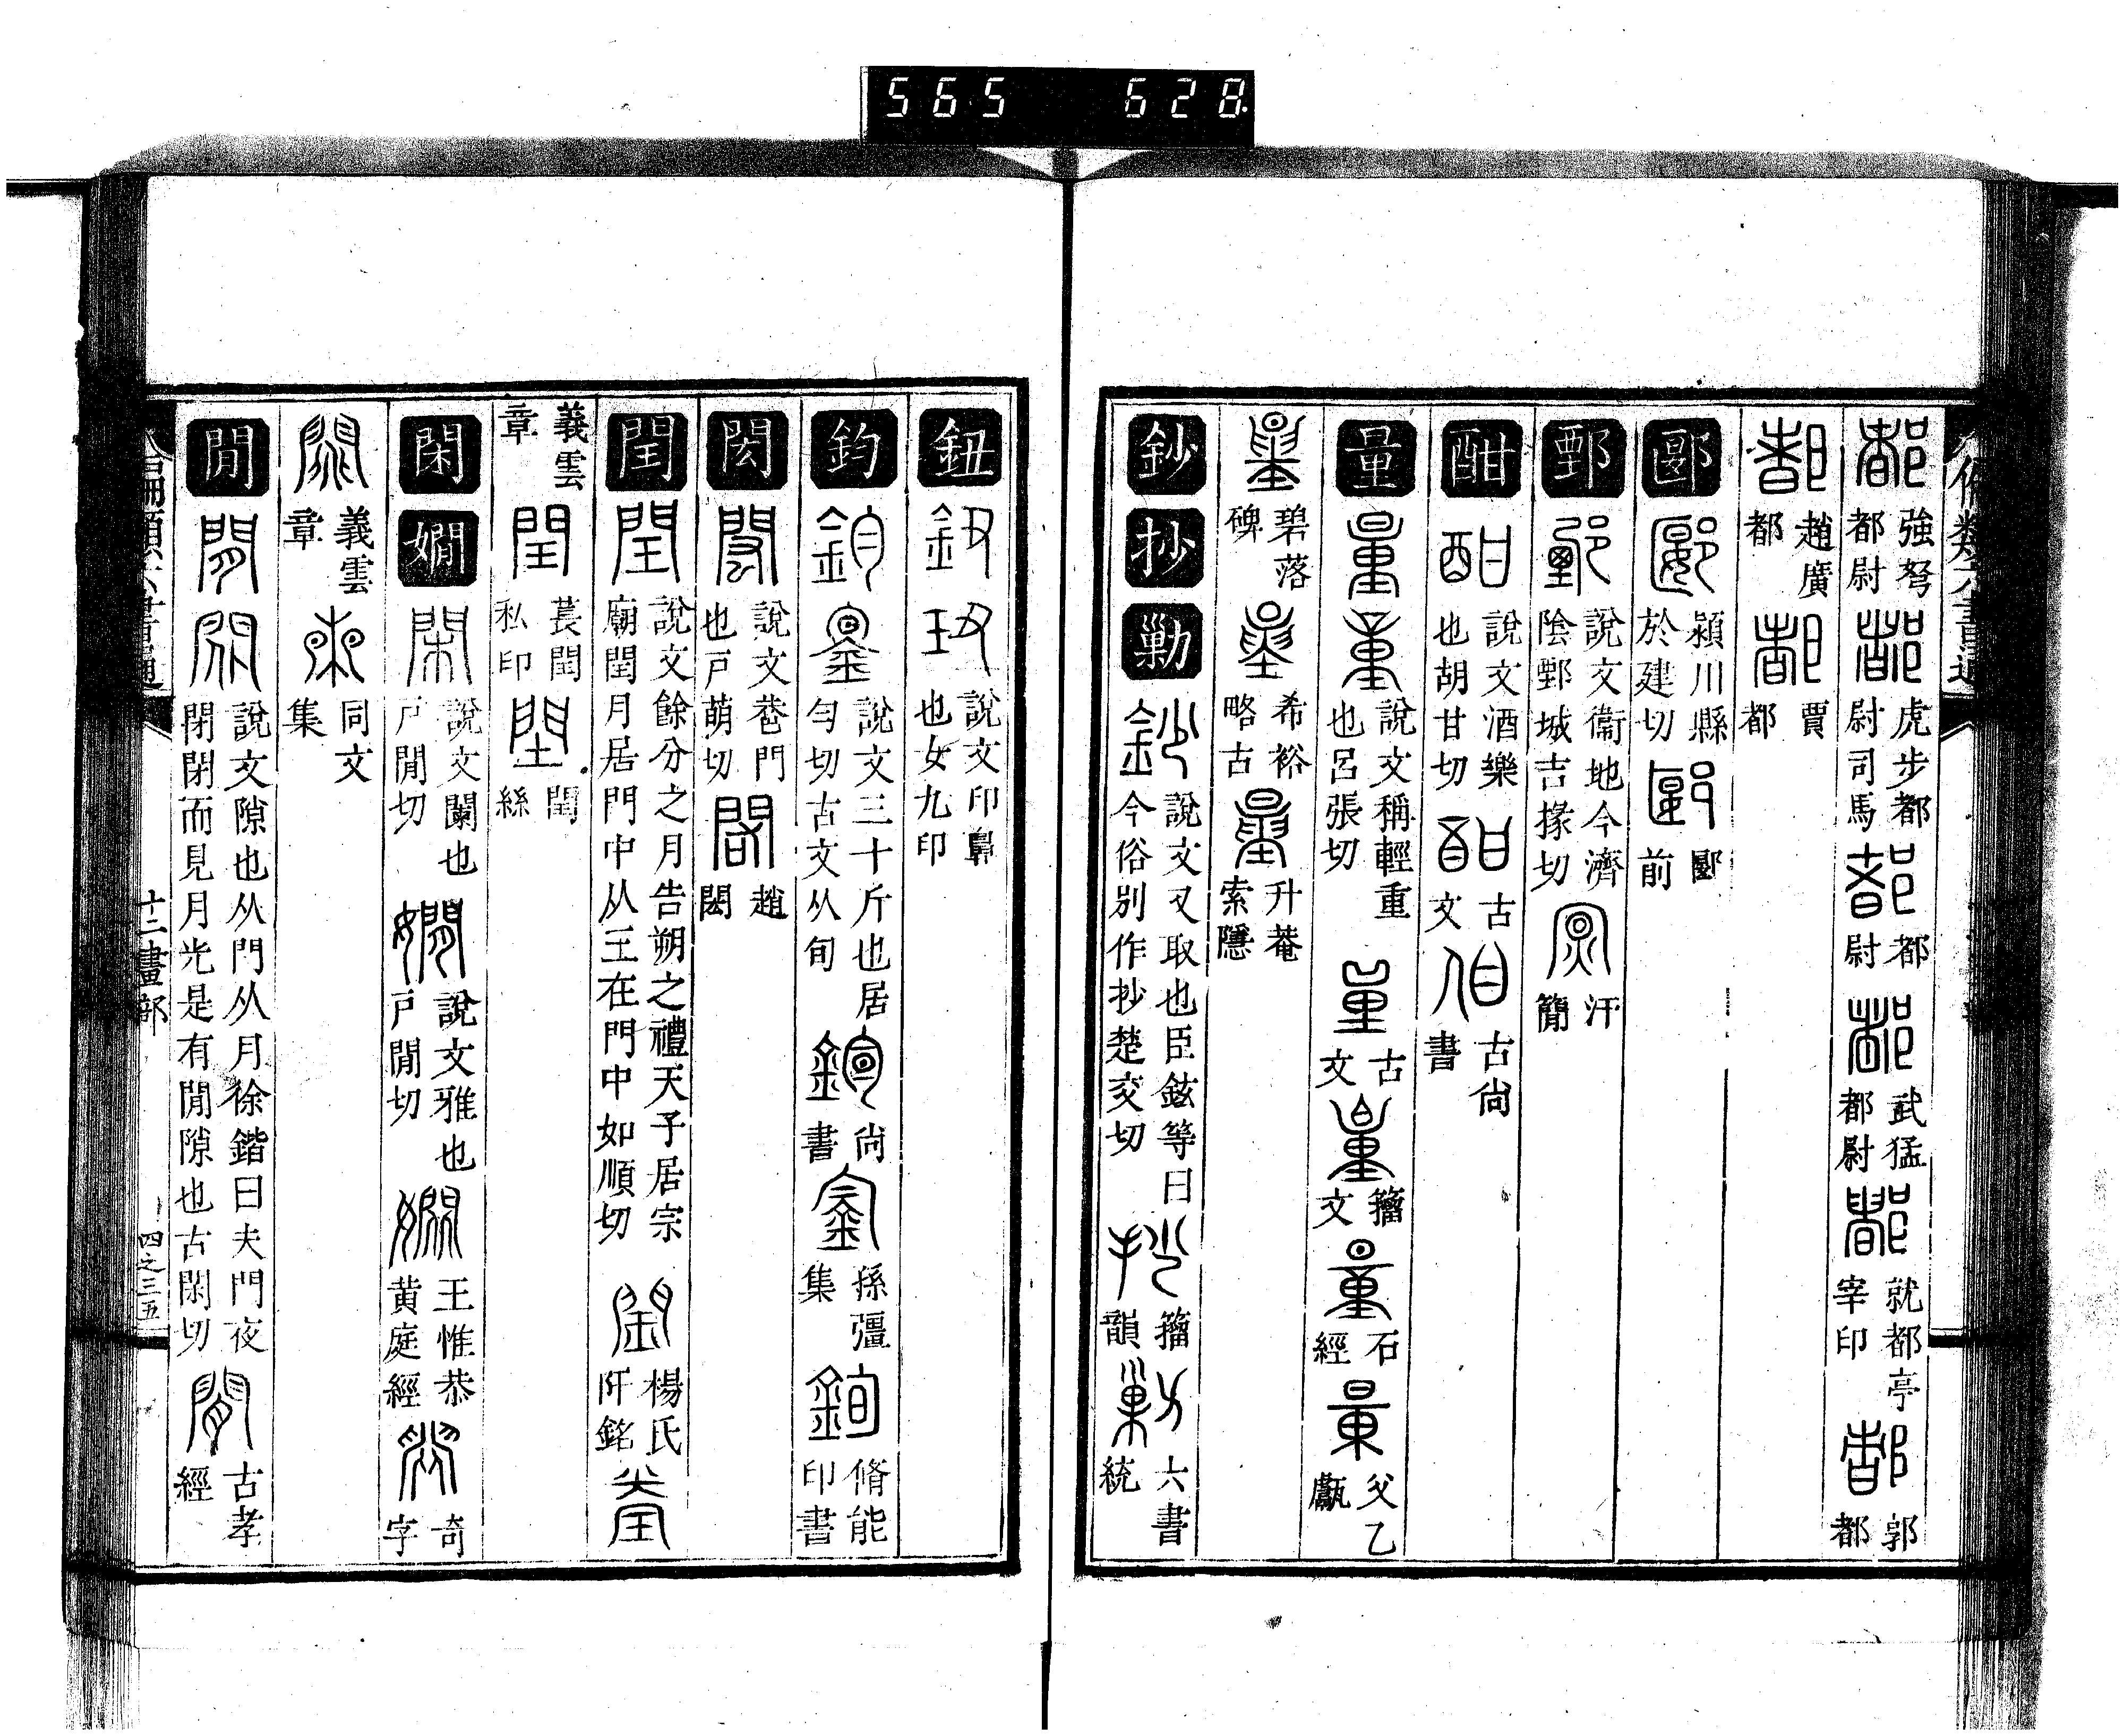 565 628
強弩都尉 虎步都尉司馬 都尉 武猛都尉 就都亭宰印 郭都
趙廣都 賈都
郾 潁川縣於建切 郾前
鄄 說文衞地今濟陰鄄城吉掾切 汗簡
酣 說文酒樂也胡甘切 古文 古尚書
量 說文稱輕重也呂張切 古文 籀文 石經 父乙甗
碧落碑 希裕略古 升菴索隱
鈔 抄 勦 說文叉取也臣鉉等曰今俗別作抄楚交切 籀韻 六書統
鈕 說文印鼻也女九印
鈞 說文三十斤也居勻切古文从旬 尚書 孫彊集 脩能印書
閎 說文巷門也戶萌切 趙閎
閏 說文餘分之月告朔之禮天子居宗廟閏月居門中从王在門中如順切 楊氏阡銘
義雲章 萇閏私印 閏絲
閑 嫺 說文闌也戶閒切 說文雅也戶閒切 王惟恭黃庭經 奇字
義雲章 同文集
閒 說文隙也从門从月徐鍇曰夫門夜閉閉而見月光是有閒隙也古閑切 古孝經
十二畫部
四之三五